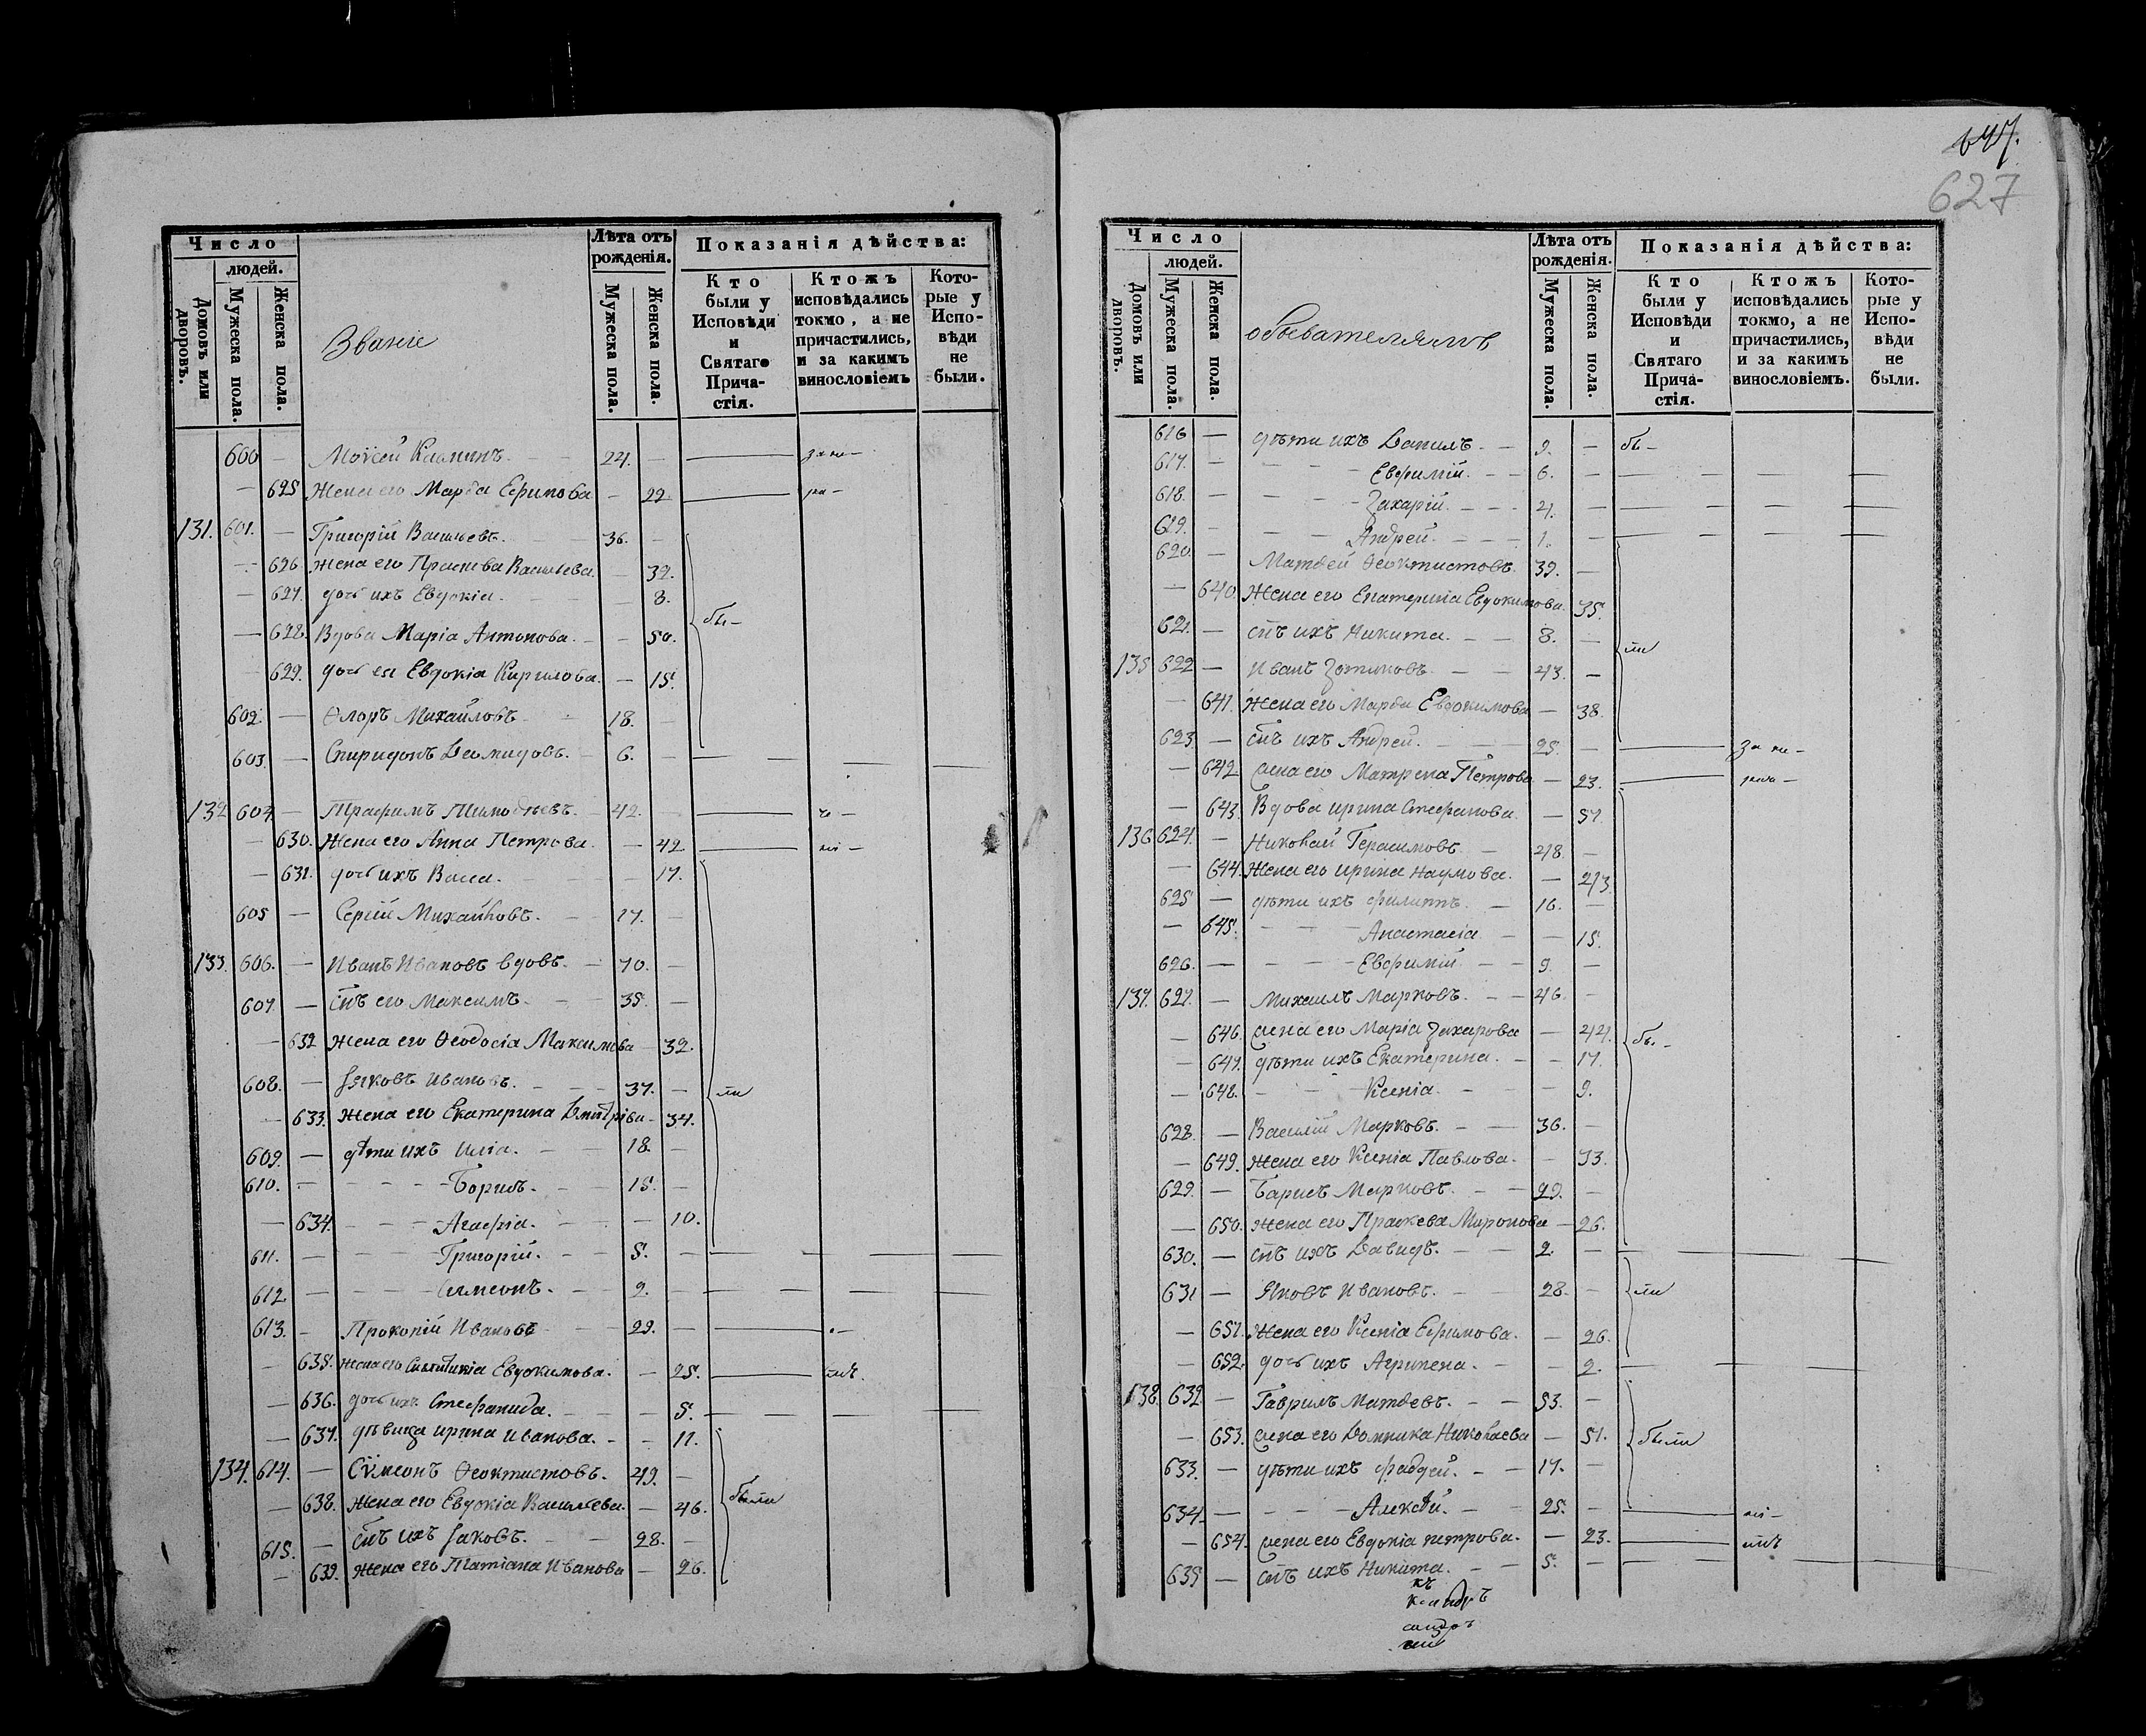 Число
людей.
Домовъ или дворовъ.
Мужеска пола.
Женска пола.
Званіе
Лѣта отъ рожденія.
Мужеска пола.
Женска пола.
Показанія дѣйства:
Кто были у Исповѣди и Святаго Прича-стія.
Ктожъ исповѣдались токмо, а не причастились, и за какимъ винословіемъ
Кото-рые у Испо-вѣди не были.
600 — Моѵсей 24. —
— 625 Жена его Марѳа Ефимова — 22.
131. 601. — Григорій Васильевъ. 36. —
— 626 жена его Праскева Васильева. — 32.
— 627. дочь ихъ Евдокіа. — 8.
— 628. Вдова Маріа Антонова. — 50. бы-
— 629. дочь ея Евдокіа Кирилова. — 15.
602. — Ѳлоръ Михайловъ 18. —
603. — Спиридонъ Деомидовъ. 6. —
132 604 — Трафимъ Тимоѳѣевъ. 42. —
— 630. Жена его Анна Петрова. — 42
— 631. дочь ихъ Васса. — 17.
605 — Сергій Михайловъ. 17. —
133. 606. — Иванъ Ивановъ вдовъ. 70. —
607. — Снъ его Максимъ. 35. —
— 632 жена его Ѳеодосіа Максимова — 32.
608. — Іяковъ Ивановъ. 37. — ли
— 633. Жена его Екатерина Дмитріва — 34.
609. — дѣти ихъ Иліа. 18. —
610. — Борисъ. 15. —
— 634. Агафіа. — 10.
611. — Григорій. 5. —
612 — Симеонъ. 2. —
613. — Прокопій Ивановъ 29. —
— 635. жена его Синклитикіа Евдокимова. — 25.
— 636. дочь ихъ Стефанида. — 5.
— 637. дѣвица Ирина Иванова. — 11.
134. 614. — Сѵмеонъ Ѳеоктистовъ. 49. —
— 638. Жена его Евдокіа Васильева — 46. были
615. — Снъ ихъ Іаковъ. 28. —
— 639. Жена его Татіана Иванова — 26.
647.
627
Число
людей.
Домовъ или дворовъ.
Мужеска пола.
Женска пола.
обывателямъ
Лѣта отъ рожденія.
Мужеска пола.
Женска пола.
Показанія дѣйства:
Кто были у Исповѣди и Святаго Прича-стія.
Ктожъ исповѣдались токмо, а не причастились, и за какимъ винословіемъ.
Кото-рые у Испо-вѣди не были.
616 — дѣти ихъ Данилъ. 9. — бы-
617. — Евфимій. 6. —
618. — Захарій. 4. —
619. — Андрей. 1. —
620. — Матѳей Ѳеоктистовъ. 39. —
— 640. Жена его Екатерина Евдокимова. 35.
621. — снъ ихъ Никита. 8. — ли
135 622 — Иванъ Зотиковъ. 43. —
— 641. Жена его Марѳа Евдокимова — 38.
623. — Снъ ихъ Андрей. 25. —
— 642 жена его Матрена Петрова — 23.
— 643. Вдова Ирина Стефанова. — 57.
136 624. — Николай Герасимовъ. 48. —
— 644. Жена его Ирина Наумова. — 43
625 — дѣти ихъ Филиппъ. 16. —
— 645. Анастасіа — 15.
626. — Евфимій 9. —
137. 627. — Михаилъ Марковъ. 46. —
— 646. жена его Маріа Захарова — 44. бы-
— 647. дѣти ихъ Екатерина. — 17.
— 648. Ксеніа. — 9.
628. — Василій Марковъ. 36. —
— 649. Жена его Ксеніа Павлова. — 33.
629. — Барисъ Марковъ. 29. —
— 650. Жена его Праскева Миронова — 26.
630. — снъ ихъ Давидъ. 2. —
631 — Яковъ Ивановъ. 28. — ли
— 651. Жена его Ксеніа Ефимова. — 26.
— 652. дочь ихъ Агрипена. — 2.
138. 632. — Гаврилъ Матѳеевъ. 53. —
— 653. жена его Домника Николаева — 51. были
633. — дѣти ихъ Фадѳей. 17. —
634. — Алексѣй. 25. —
— 654. жена его Евдокіа Петрова. — 23.
635 — снъ ихъ Никита. 5. —